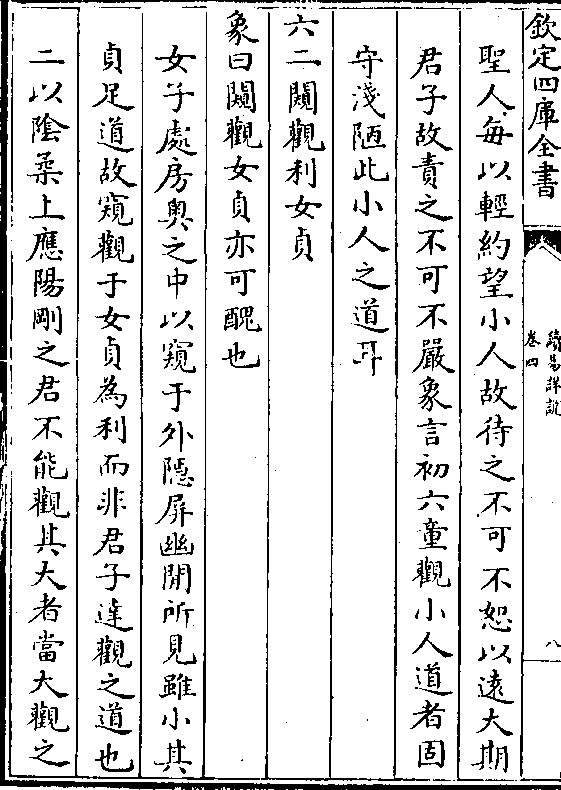 欽定四庫全書
讀易詳說
卷四
八
聖人每以輕約望小人故待之不可不恕以遠大期
君子故責之不可不嚴象言初六童觀小人道者固
守淺陋此小人之道耳
六二闚觀利女貞
象曰闚觀女貞亦可醜也
女子處房奥之中以窺于外隱屏幽閒所見雖小其
貞足道故窺觀于女貞為利而非君子達觀之道也
二以陰柔上應陽剛之君不能觀其大者當大觀之